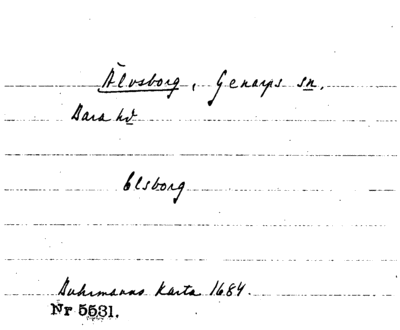 Älvsborg, Genarps sn.
Bara hd
Elsborg
Buhrmanns Karta 1684.
Nr 5531.